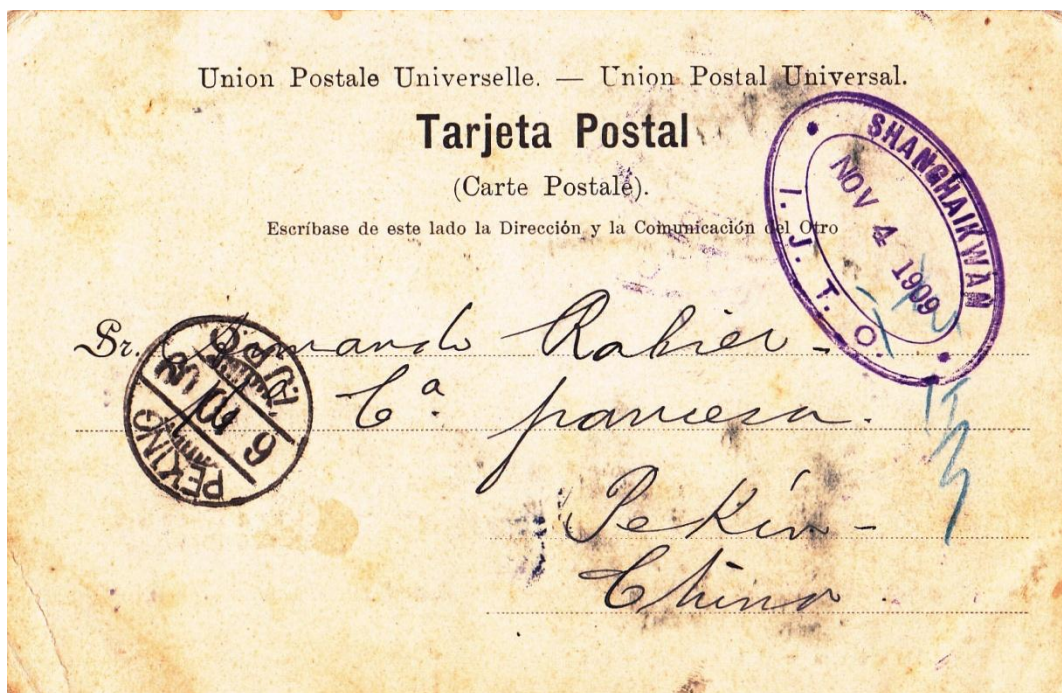 Union Postale Universelle. — Union Postal Universal.
Tarjeta Postal
(Carte Postale).
Escríbase de este lado la Dirección y la Comunicación del Otro
SHANGHAIKWAN
NOV 4 1909
I. J. T. O.
Sr. Rabier
Cª francesa.
Pekin
China
PEKING